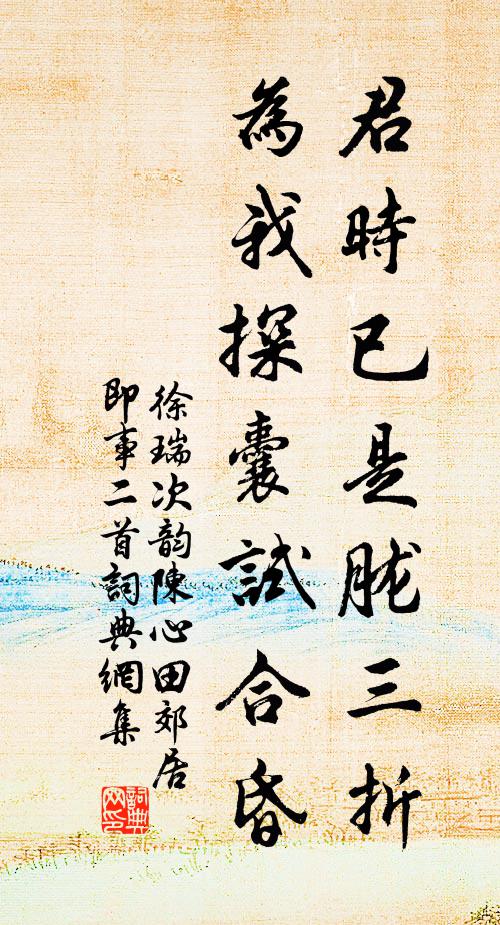 君時已是肱三折
為我探囊試合昏
徐瑞次韵陳心田郊居
即事二首詞典網集
詞典
网印